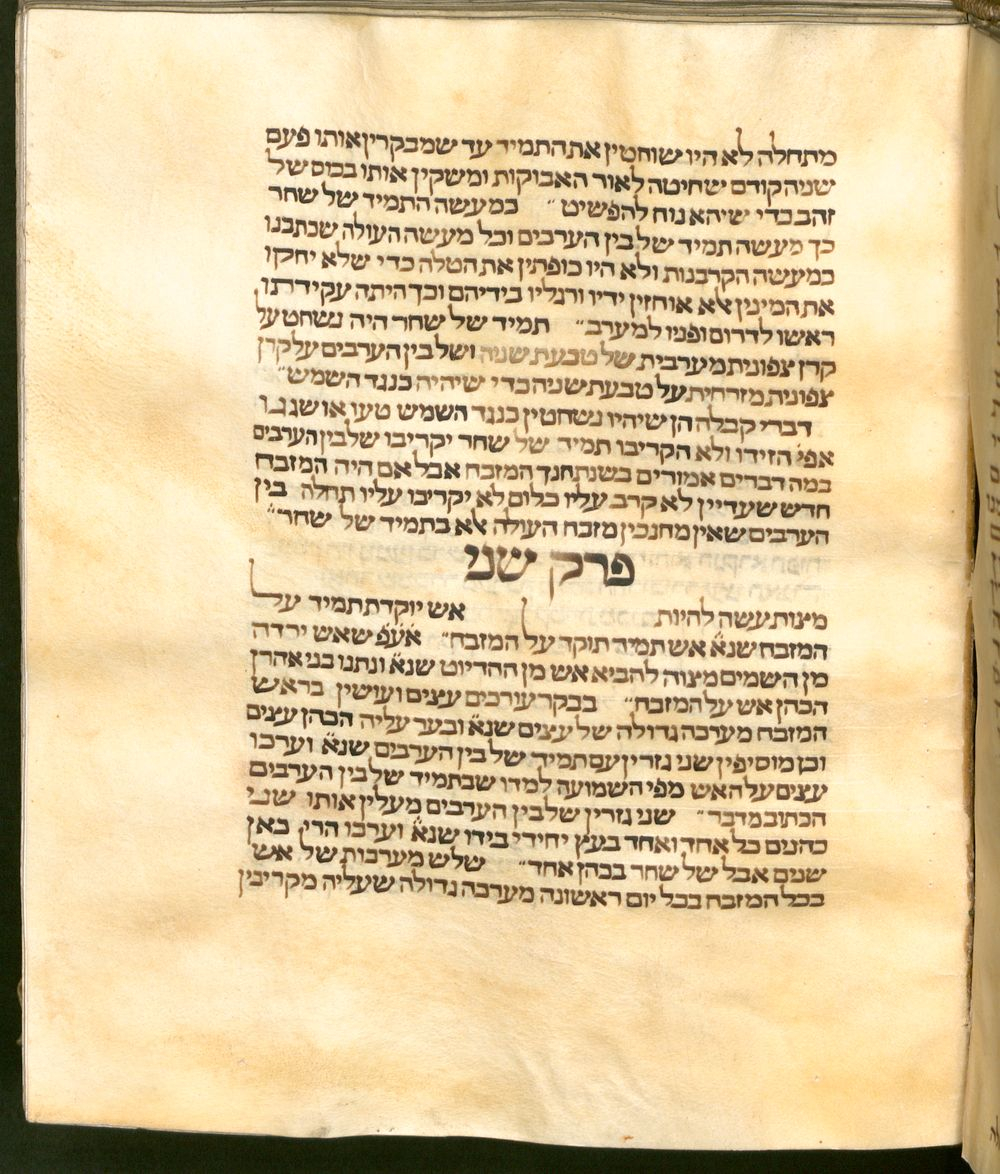 מתחלה לא היו שוחטין את התמיד עד שמבקרין אותו פעם
שניה קודם שחיטה לאור האבוקות ומשקין אותו בכוס של
זהב כדי שיהא נוח להפשיט ״ כמעשה התמיד של שחר
כך מעשה תמיד של בין הערבים וכל מעשה העולה שכתבנו
במעשה הקרבנות ולא היו כופתין את הטלה כדי שלא יחקו
את המינין אלא אוחזין ידיו ורגליו בידיהם וכך היתה עקידתו
ראשו לדרום ופניו למערב ״ תמיד של שחר היה נשחט על
קרן צפונית מערבית של טבעת שניה ושל בין הערבים על קרן
צפונית מזרחית על טבעת שניה כדי שיהיה כנגד השמש ״
דברי קבלה הן שיהיו נשחטין כנגד השמש טעו או שגגו
אפי׳ הזידו ולא הקריבו תמיד של שחר יקריבו של בין הערבים
במה דברים אמורים בשנתחנך המזבח אבל אם היה המזבח
חדש שעדיין לא קרב עליו כלום לא יקריבו עליו תחלה בין
הערבים שאין מחנכין מזבח העולה אלא בתמיד של שחר ״
פרק שני
מצות עשה להיות אש יוקדת תמיד על
המזבח שנא׳ אש תמיד תוקד על המזבח ״ אע״פ שאש ירדה
מן השמים מצוה להביא אש מן ההדיוט שנא׳ ונתנו בני אהרן
הכהן אש על המזבח ״ בבקר עורכים עצים ועושין בראש
המזבח מערכה גדולה של עצים שנא׳ ובער עליה הכהן עצים
וכן מוסיפין שני גזרין עם תמיד של בין הערבים שנא׳ וערכו
עצים על האש מפי השמועה למדו שבתמיד של בין הערבים
הכתוב מדבר ״ שני גזרין של בין הערבים מעלין אותו שני
כהנים כל אחד ואחד בעץ יחידי בידו שנא׳ וערכו הרי כאן
שנים אבל של שחר בכהן אחד ״ שלש מערכות של אש
בכל המזבח בכל יום ראשונה מערכה גדולה שעליה מקריבין